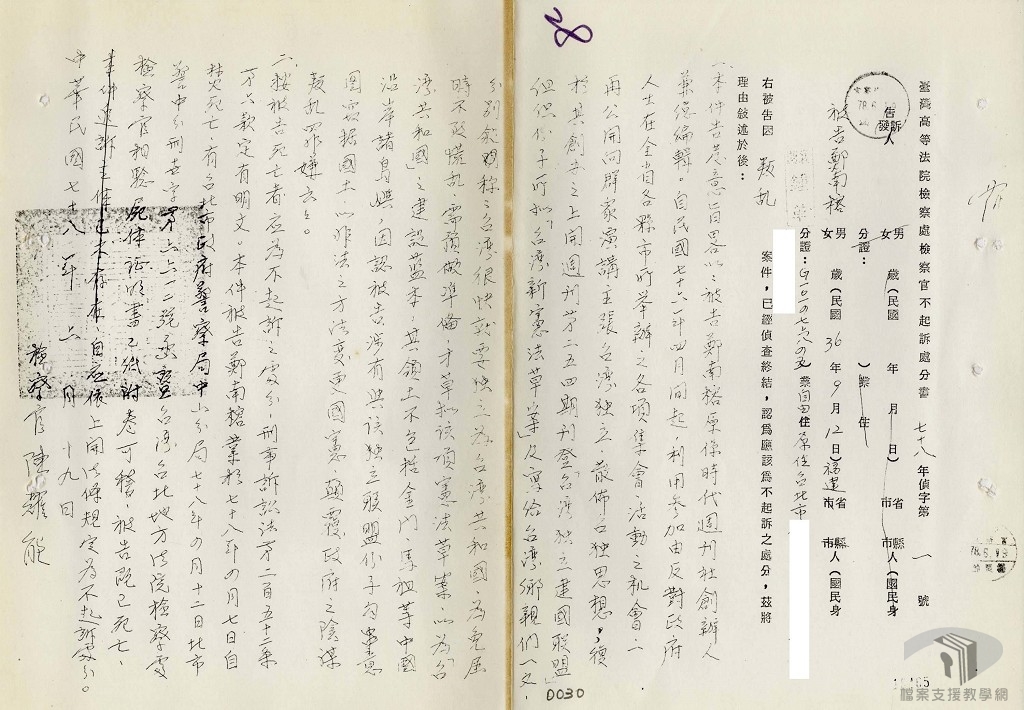 臺灣高等法院檢察處檢察官不起訴處分書　七十八年偵字第一號
告訴發人
男女　歲（民國　年　月　日）　省市　縣市人（國民身
分證：　）業　住
被告鄭南榕　男女　歲（民國36年9月12日）福建省市　縣市人（國民身
分證：　）業自由　住原住台北市
右被告因　叛乱　案件，已經偵查終結，認為應該為不起訴之處分，茲將
理由敘述於後：
一、本件告意旨畧以：被告鄭南榕原係時代週刊社創辦人
兼總編輯。自民國七十六年四月間起，利用參加由反對政府
人士在全省各縣市所舉辦之各項集會、活動之机會，一
再公開向群眾演講主張台湾独立，散佈台独思想，復
於其創辦之上開週刊第二五四期刊登「台湾独立建國聯盟」
組織份子所擬「台湾新憲法草案」及寫給台湾鄉親們一文，
分別敘明稱：台湾很快就要独立為台湾共和國，為免屆
時不致慌乱，需預做準備，才草擬該項憲法草案，以為台
湾共和國之建設藍本，其領土不包括金門、馬祖等中國
沿岸諸島嶼，因認被告涉有與該独立聯盟份子勾串意
圖竊據國土，以非法之方法變更國憲、顛覆政府之陰謀
叛乱罪嫌云云。
二、按被告死亡者應為不起訴之處分，刑事訴訟法第二百五十二条
第六款定有明文。本件被告鄭南榕業於七十八年四月七日自
焚死亡，有台北市政府警察局中山分局七十八年四月十二日北市
警中分刑去字第六六一二號函暨台湾台北地方法院檢察處
檢察官相驗屍体証明書乙紙附卷可稽，被告既已死亡，
本件追訴主体已不存在，自應依上開法條規定為不起訴處分。
中華民國七十八年　六月　十九日
檢察官陳耀能
D030
檔案支援教學網